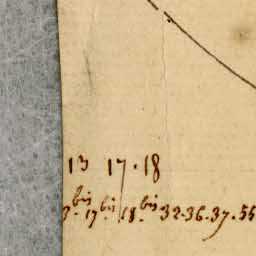 13 17.18
3.bis 17.bis 18.bis 32.36.37.56